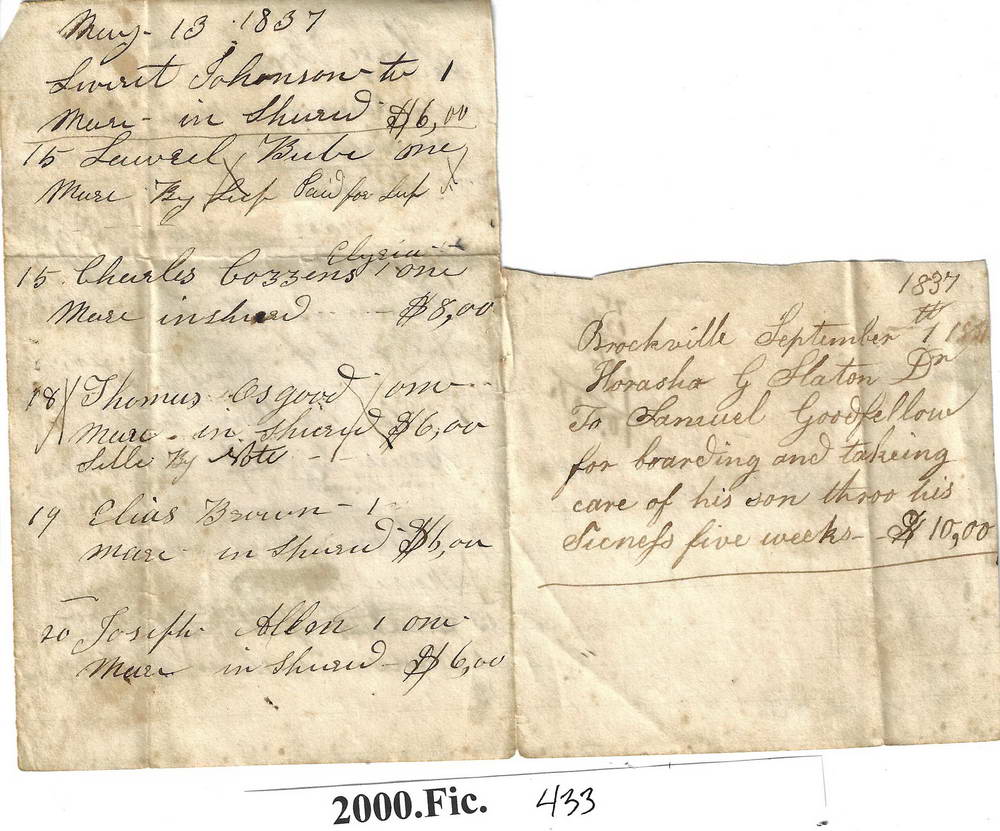 May 13 1837
Johonson to 1
Mare in Shured $6,00
15 Laurel Bebe one
Mare By Leep Paid for Leep
Elyria
15 Charles Cozzens 1 one
Mare inshured $8,00
18 Thomas Osgood one
Mare in Shured $6,00
By Note
19 Elias Brown 1
mare in Shured $6,00
20 Joseph Allen 1 one
Mare in Shured $6,00
1837
Brockville September 1th
Horasha G Slaton Dr
To Samuel Goodfellow
for boarding and takeing
care of his son throo his
Sicness five weeks $10,00
2000.Fic. 433